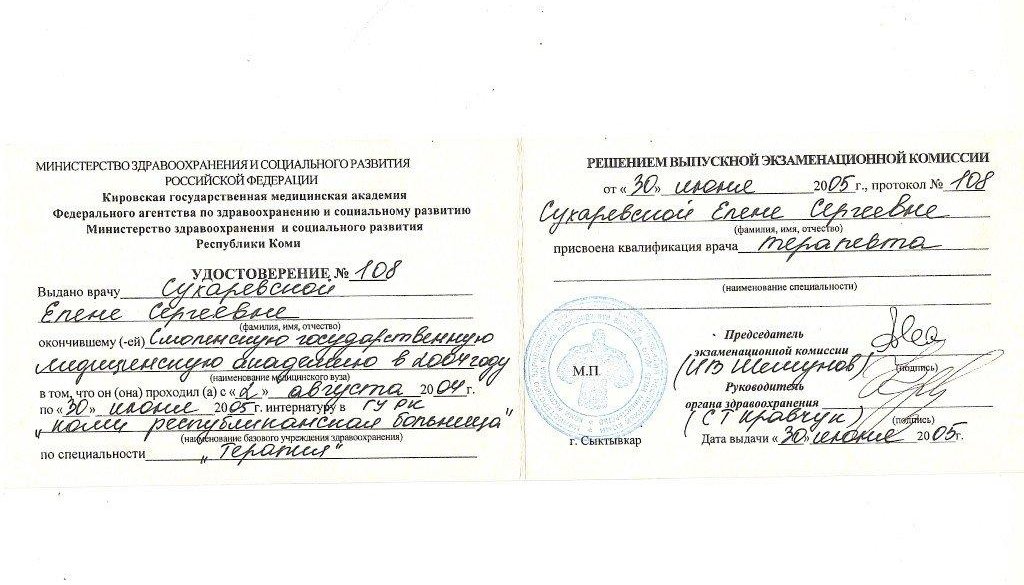 МИНИСТЕРСТВО ЗДРАВООХРАНЕНИЯ И СОЦИАЛЬНОГО РАЗВИТИЯ
РОССИЙСКОЙ ФЕДЕРАЦИИ
Кировская государственная медицинская академия
Федерального агентства по здравоохранению и социальному развитию
Министерство здравоохранения и социального развития
Республики Коми
УДОСТОВЕРЕНИЕ № 108
Выдано врачу Сухаревской
Елене Сергеевне
(фамилия, имя, отчество)
окончившему (-ей) Смоленскую государственную
медицинскую академию в 2004 году
(наименование медицинского вуза)
в том, что он (она) проходил (а) с «2» августа 2004 г.
по «30» июня 2005 г. интернатуру в ГУ РК
"Коми республиканская больница"
(наименование базового учреждения здравоохранения)
по специальности "Терапия"
РЕШЕНИЕМ ВЫПУСКНОЙ ЭКЗАМЕНАЦИОННОЙ КОМИССИИ
от «30» июня 2005 г., протокол № 108
Сухаревской Елене Сергеевне
(фамилия, имя, отчество)
присвоена квалификация врача терапевта
(наименование специальности)
Председатель
экзаменационной комиссии
(И В Шешунов)
(подпись)
М.П.
Руководитель
органа здравоохранения
(С Т Кравчук)
(подпись)
г. Сыктывкар
Дата выдачи «30» июня 2005г.